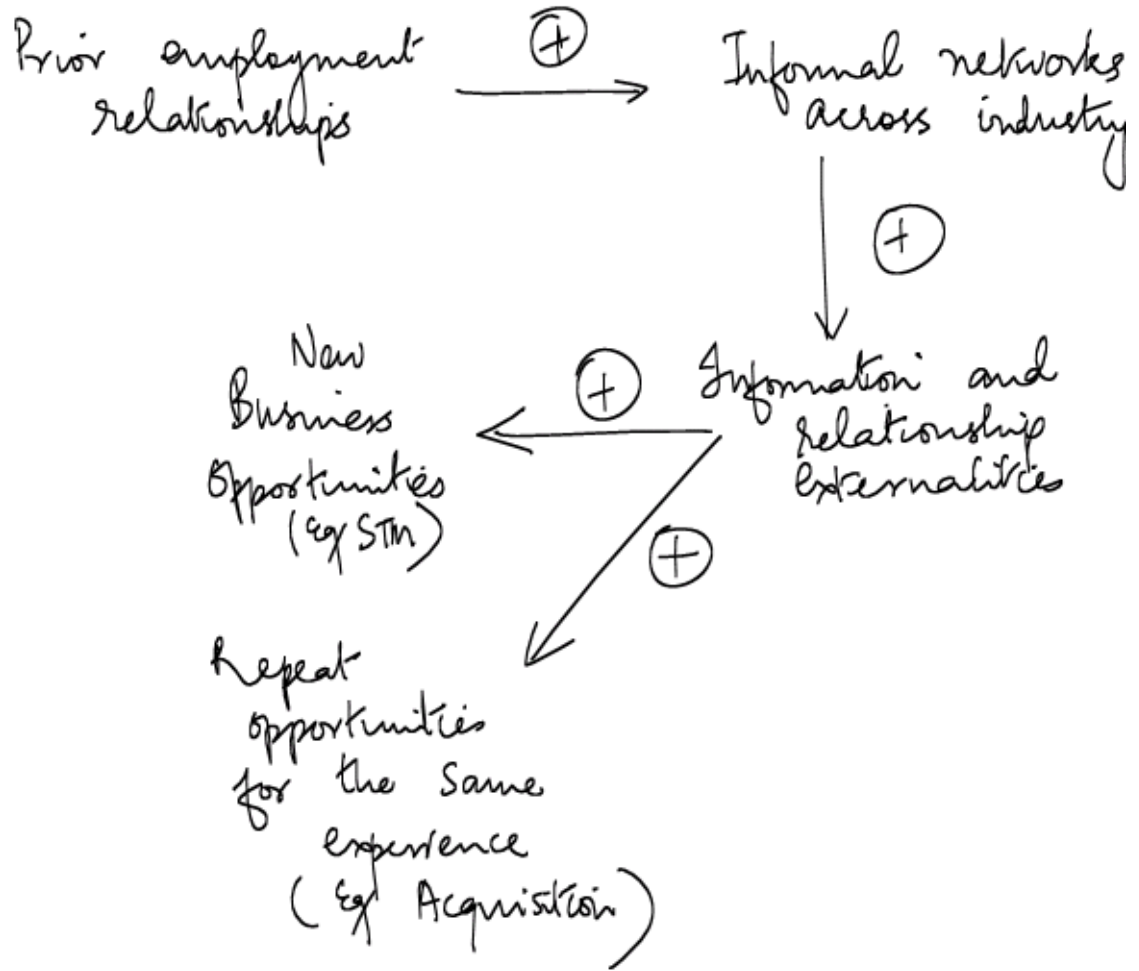 Prior employment
relationships
+
Informal networks
across industry
+
Information and
relationship
externalities
+
New
Business
Opportunities
(Eg STM)
+
Repeat
opportunities
for the same
experience
(Eg Acquisition)